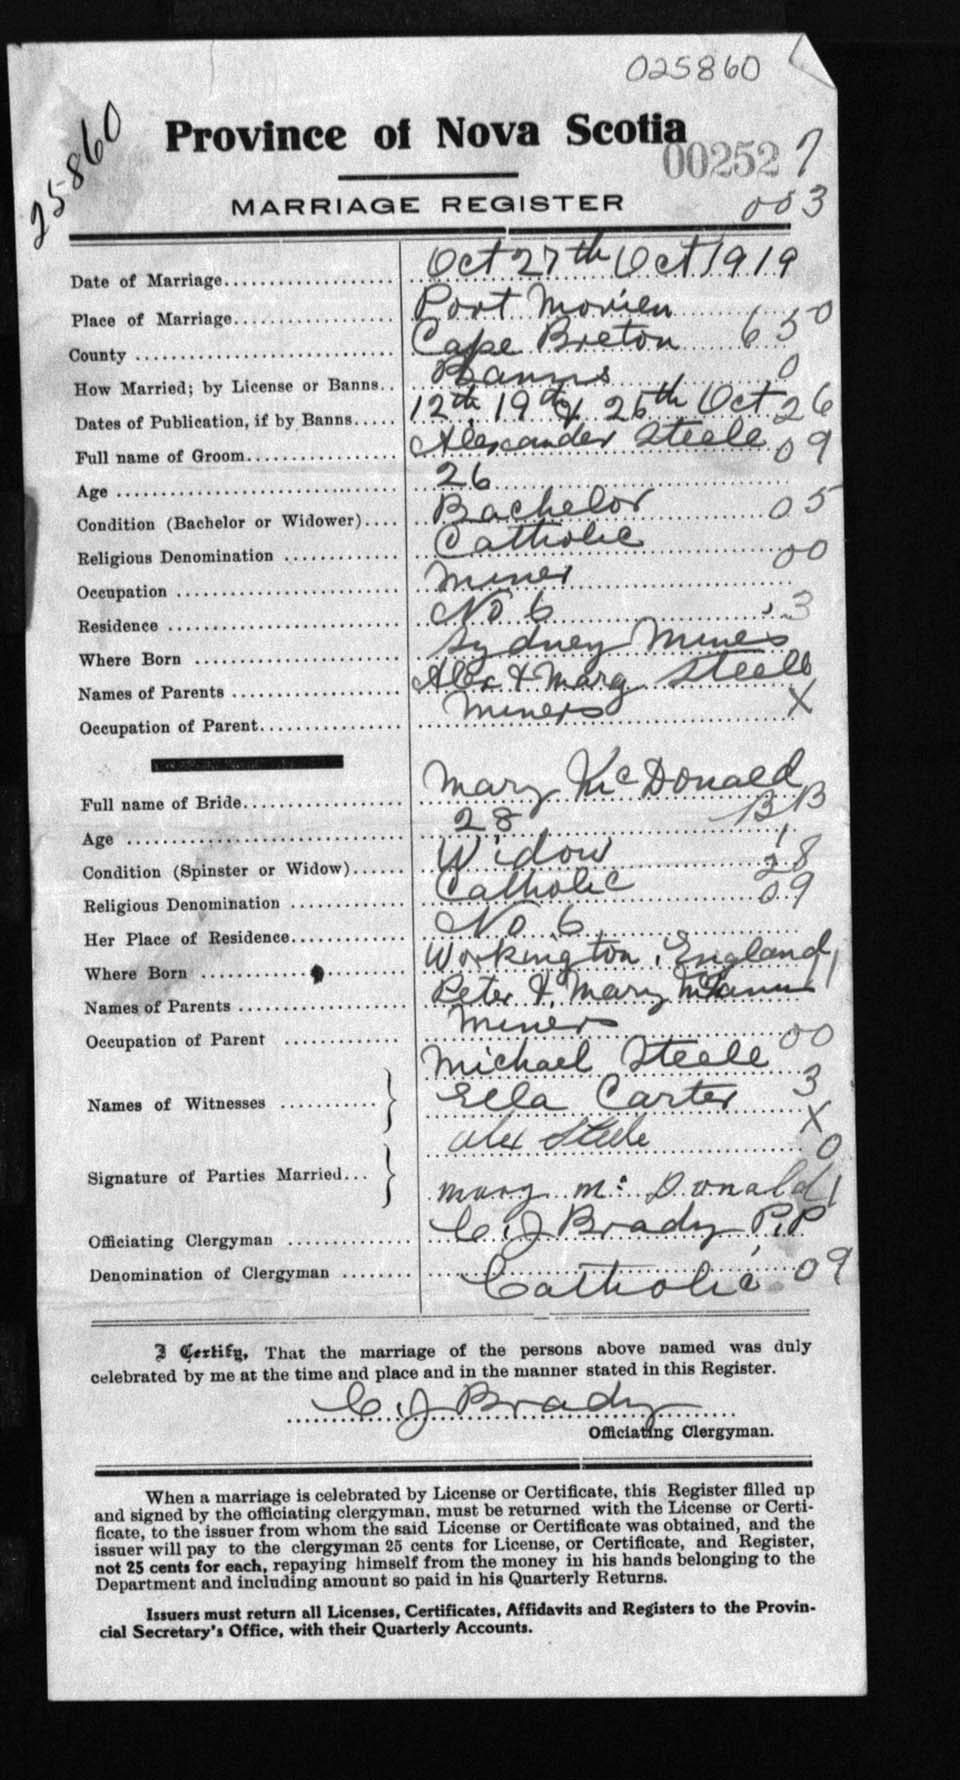 025860
25860
Province of Nova Scotia
00252 7
MARRIAGE REGISTER
003
Date of Marriage Oct 27th Oct 1919
Place of Marriage Port Morien
County Cape Breton 6 5 0
How Married; by License or Banns Banns 0
Dates of Publication, if by Banns 12th 19th & 26th Oct 26
Full name of Groom Alexander Steele 09
Age 26
Condition (Bachelor or Widower) Bachelor 05
Religious Denomination Catholic 00
Occupation Miner
Residence No 6 3
Where Born Sydney Mines
Names of Parents Alex & Mary Steele
Occupation of Parent Miners X
Full name of Bride Mary McDonald
Age 28 BB
Condition (Spinster or Widow) Widow 1 28
Religious Denomination Catholic 09
Her Place of Residence No 6
Where Born Workington, England 1
Names of Parents Peter & Mary
Occupation of Parent Miners 00
Names of Witnesses Michael Steele 3
Ella Carter X
Signature of Parties Married Alex Steele 0
Mary Mc Donald 1
Officiating Clergyman C. J Brady P.P
Denomination of Clergyman Catholic 09
I Certify, That the marriage of the persons above named was duly
celebrated by me at the time and place and in the manner stated in this Register.
C. J Brady
Officiating Clergyman.
When a marriage is celebrated by License or Certificate, this Register filled up
and signed by the officiating clergyman, must be returned with the License or Certi-
ficate, to the issuer from whom the said License or Certificate was obtained, and the
issuer will pay to the clergyman 25 cents for License, or Certificate, and Register,
not 25 cents for each, repaying himself from the money in his hands belonging to the
Department and including amount so paid in his Quarterly Returns.
Issuers must return all Licenses, Certificates, Affidavits and Registers to the Provin-
cial Secretary's Office, with their Quarterly Accounts.